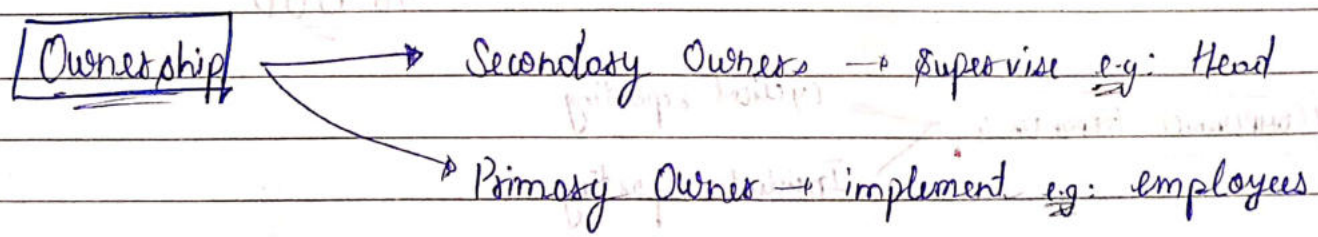 Ownership → Secondary Owners → Supervise e.g: Head
→ Primary Owner → implement e.g: employees